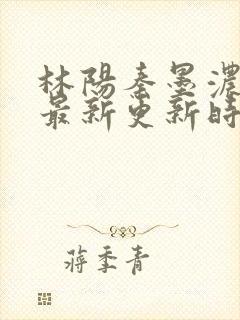 林陽秦墨濃
最新更新時
蔣季青